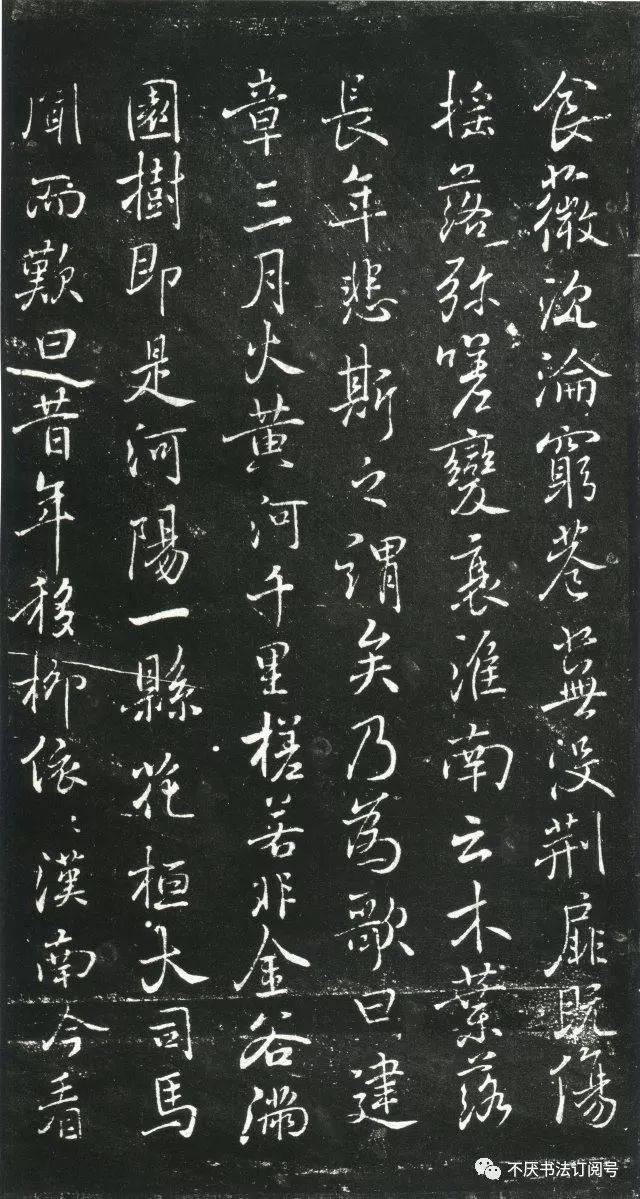 食薇沉淪窮巷蕪没荆扉既傷
摇落弥嗟變衰淮南云木葉落
長年悲斯之謂矣乃為歌曰建
章三月火黄河千里槎若非金谷滿
園樹即是河陽一縣花桓大司馬
聞而歎曰昔年移柳依〻漢南今看
不厌书法订阅号